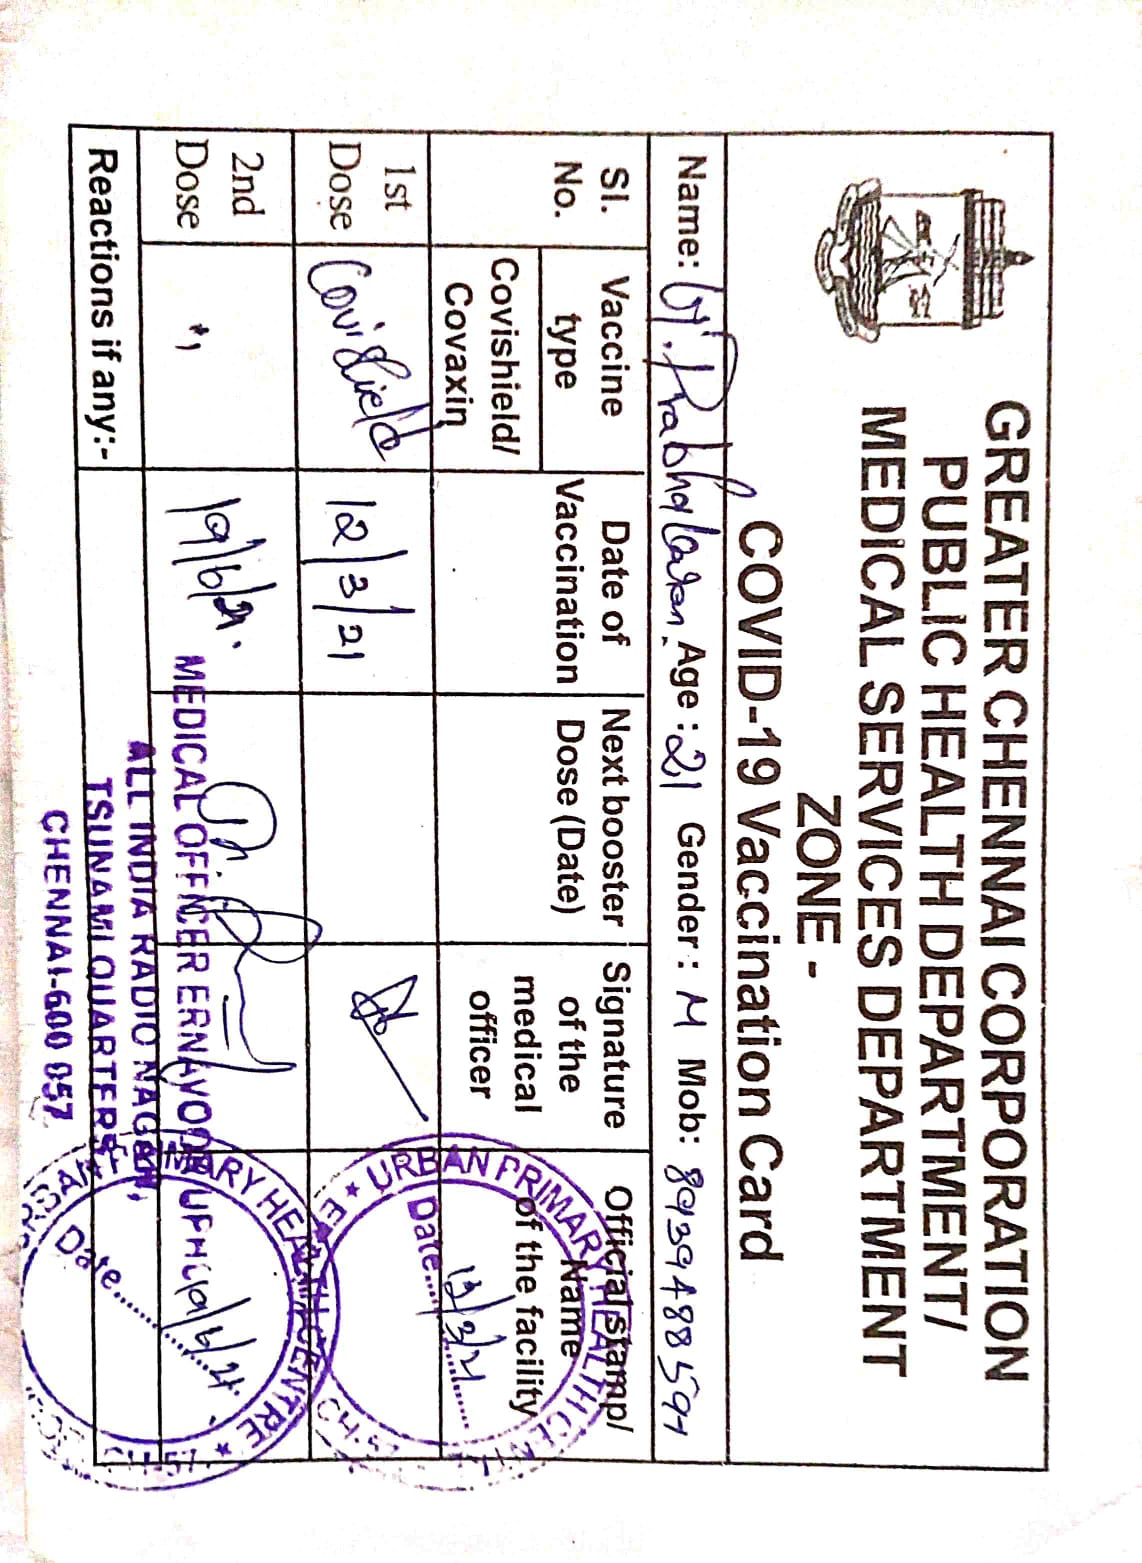 GREATER CHENNAI CORPORATION
PUBLIC HEALTH DEPARTMENT/
MEDICAL SERVICES DEPARTMENT
ZONE -
COVID-19 Vaccination Card
Name: G. Prabhakaran Age : 21 Gender : M Mob: 8939488591
Sl. No.
Vaccine type
Covishield/ Covaxin
Date of Vaccination
Next booster Dose (Date)
Signature of the medical officer
Official stamp/ Name of the facility
1st Dose Covishield 12/3/21
URBAN PRIMARY HEALTH CENTRE
Date.... 12/3/21
CH-57
2nd Dose " 19/6/21.
MEDICAL OFFICER ERNAVOOR UPHC
ALL INDIA RADIO NAGAR,
TSUNAMI QUARTERS
CHENNAI-600 057
URBAN PRIMARY HEALTH CENTRE
Date........ 19/6/21.
CH-57
Reactions if any:-